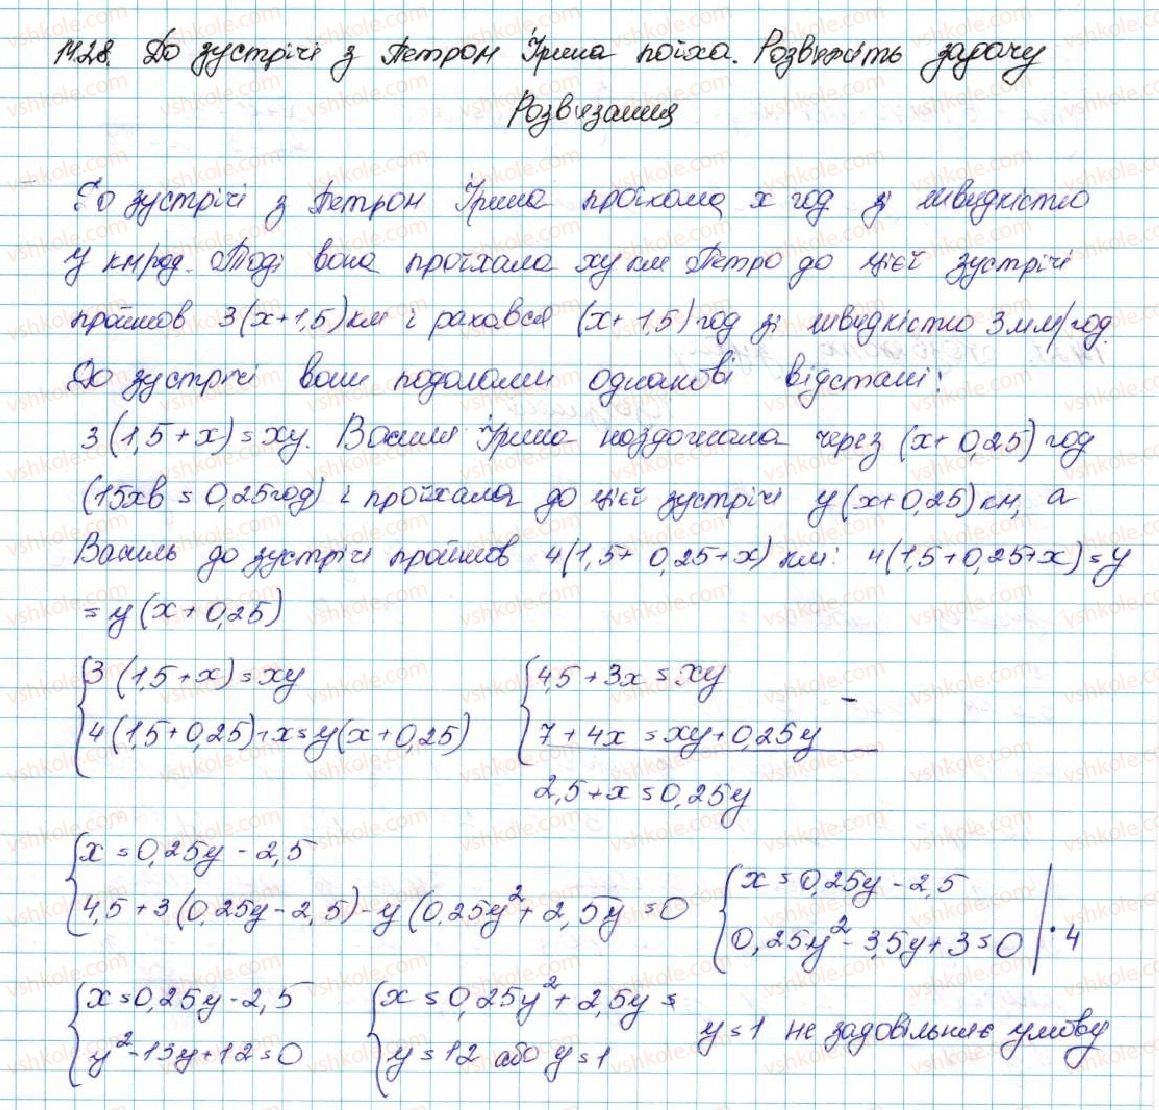 1428. До зустрічі з Петром Ірина поїха. Розв'яжіть задачу
Розв'язання
До зустрічі з Петром Ірина проїхала x год зі швидкістю
y км/год. Тоді вона проїхала xy км Петро до цієї зустрічі
пройшов 3(x+1,5) км і рахався (x+1,5) год зі швидкістю 3 км/год.
До зустрічі вони подолали однакові відстані:
3(1,5+x)=xy. Василя Ірина наздогнала через (x+0,25) год
(15хв = 0,25год) і проїхала до цієї зустрічі y(x+0,25) км, а
Василь до зустрічі пройшов 4(1,5+0,25+x) км: 4(1,5+0,25+x)=y
=y(x+0,25)
3(1,5+x)=xy
4(1,5+0,25)+x=y(x+0,25)
4,5+3x=xy
–
7+4x=xy+0,25y
2,5+x=0,25y
x=0,25y-2,5
4,5+3(0,25y-2,5)-y(0,25y²+2,5y=0
x=0,25y-2,5
0,25y²-3,5y+3=0 | ·4
x=0,25y-2,5
y²-13y+12=0
x=0,25y²+2,5y=
y=12 або y=1
y=1 не задовільняє умову